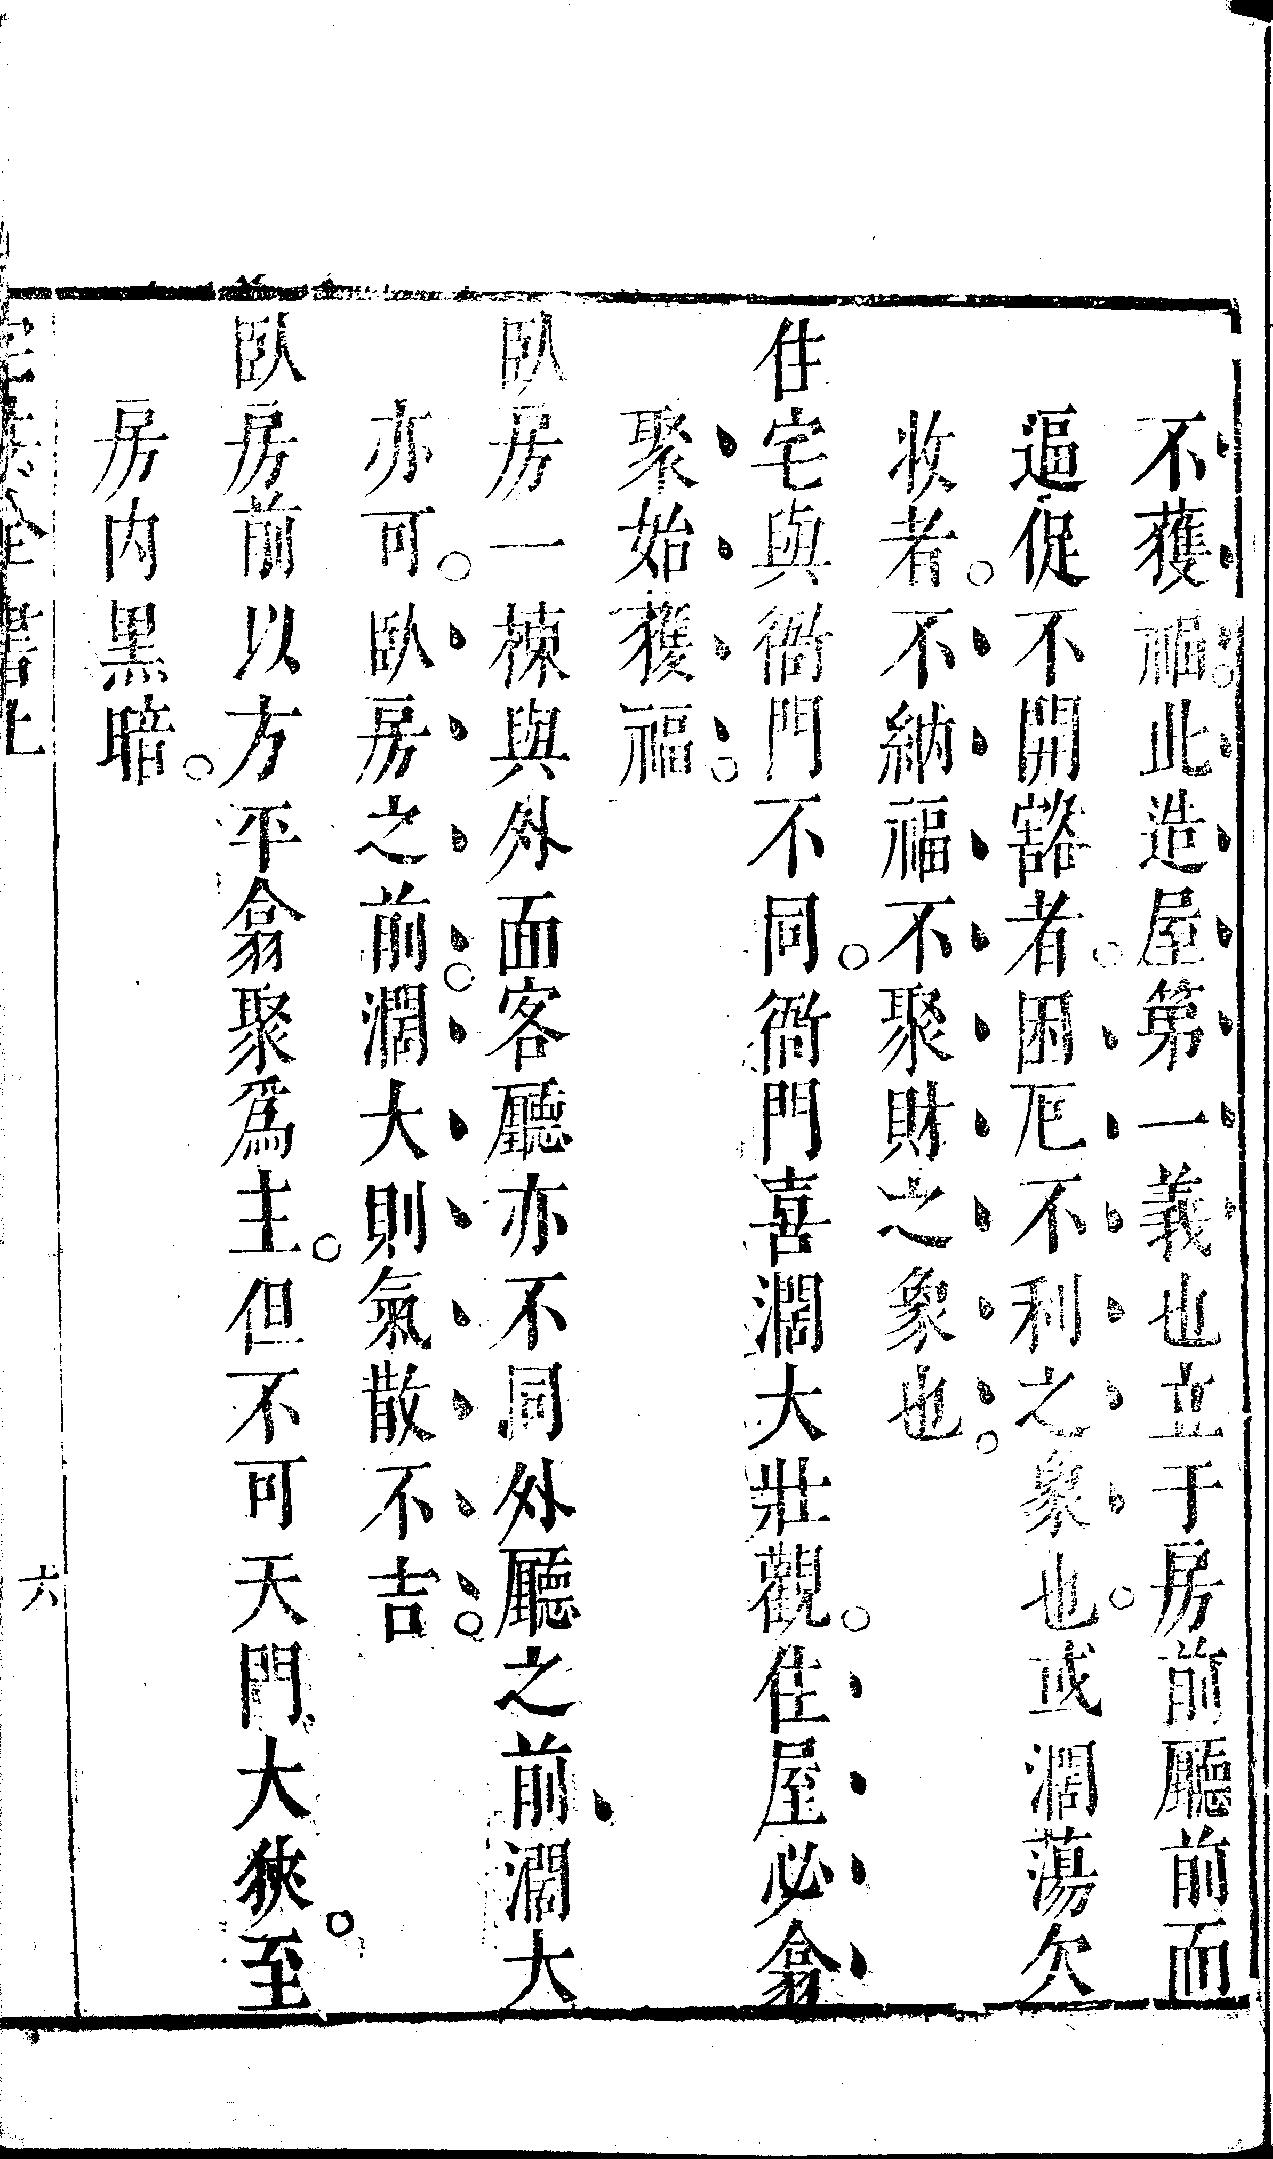 不獲福。此造屋第一義也立于房前廳前而
逼促不開豁者。困厄不利之象也。或濶蕩欠
收者。不納福不聚財之象也。
住宅與衙門不同。衙門喜濶大壯觀。住屋必翕
聚始獲福。
臥房一棟與外面客廳亦不同外廳之前濶大
亦可。臥房之前。濶大則氣散不吉。
臥房前以方平翕聚爲主。但不可天門大狹。至
房内黒暗。
六